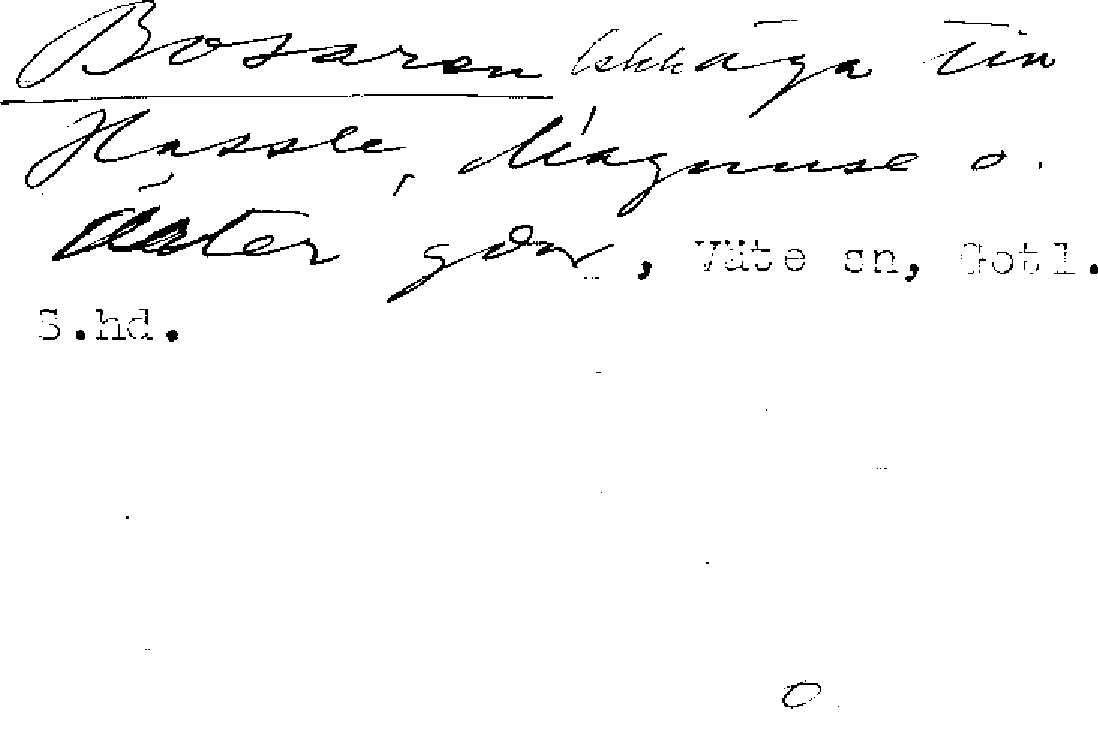 Bosaron kkhāga tin
Hassle, Magnuse o.
Öster gdr, Väte sn, Gotl.
S.hd.